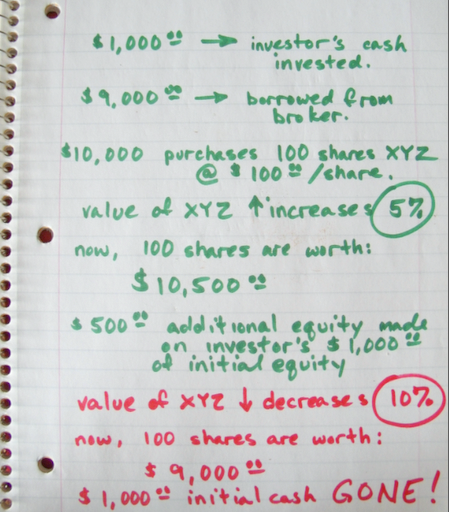 $1,000 00 → investor's cash
invested.
$9,000 00 → borrowed from
broker.
$10,000 purchases 100 shares XYZ
@ $100 00/share.
value of XYZ ↑ increases 5%
now, 100 shares are worth:
$10,500 00
$500 00 additional equity made
on investor's $1,000 00
of initial equity
value of XYZ ↓ decreases 10%
now, 100 shares are worth:
$9,000 00
$1,000 00 initial cash GONE!